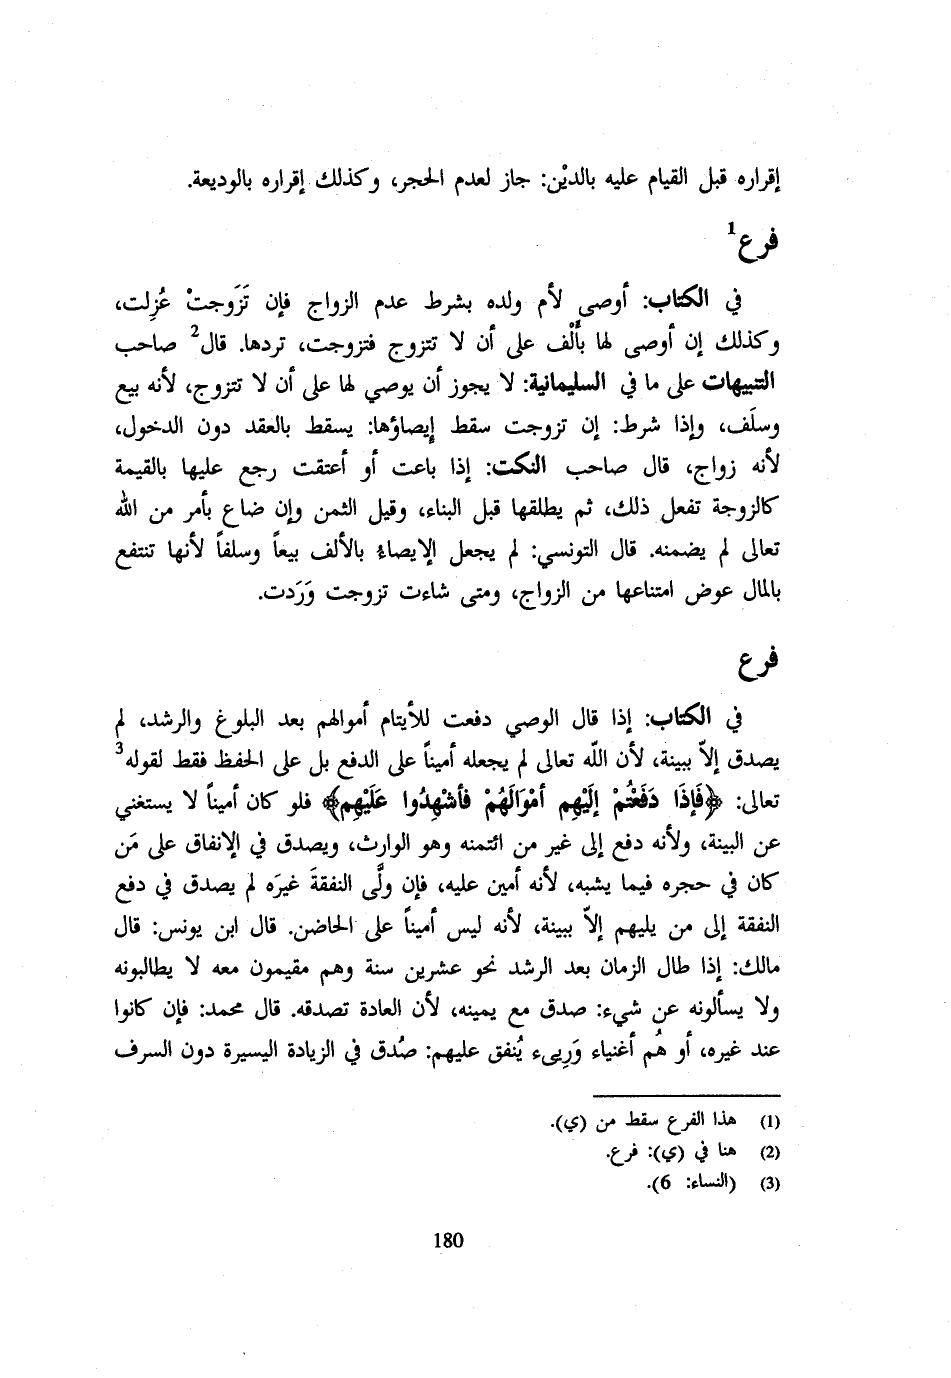 إقراره قبل القيام عليه بالديْن: جاز لعدم الحجر، وكذلك إقراره بالوديعة.
فرع1
في الكتاب: أوصى لأم ولده بشرط عدم الزواج فإن تَزَوجتْ عُزِلت،
وكذلك إن أوصى لها بأَلْف على أن لا تتزوج فتزوجت، تردها. قال2 صاحب
التنبيهات على ما في السليمانية: لا يجوز أن يوصي لها على أن لا تتزوج، لأنه بيع
وسلَف، وإذا شرط: إن تزوجت سقط إِيصاؤها: يسقط بالعقد دون الدخول،
لأنه زواج، قال صاحب النكت: إذا باعت أو أعتقت رجع عليها بالقيمة
كالزوجة تفعل ذلك، ثم يطلقها قبل البناء، وقيل الثمن وإن ضاع بأمر من الله
تعالى لم يضمنه. قال التونسي: لم يجعل الإيصاءَ بالألف بيعاً وسلفاً لأنها تنتفع
بالمال عوض امتناعها من الزواج، ومتى شاءت تزوجت وَرَدت.
فرع
في الكتاب: إذا قال الوصي دفعت للأيتام أموالهم بعد البلوغ والرشد، لم
يصدق إلاّ ببينة، لأن اللّه تعالى لم يجعله أميناً على الدفع بل على الحفظ فقط لقوله3
تعالى: ﴿فَإِذَا دَفَعْتُمْ إِلَيْهِم أمْوَالَهُمْ فَأشْهِدُوا عَلَيْهِم﴾ فلو كان أميناً لا يستغني
عن البينة، ولأنه دفع إلى غير من ائتمنه وهو الوارث، ويصدق في الإنفاق على مَن
كان في حجره فيما يشبه، لأنه أمين عليه، فإن ولَّى النفقةَ غيرَه لم يصدق في دفع
النفقة إلى من يليهم إلاّ ببينة، لأنه ليس أميناً على الحاضن. قال ابن يونس: قال
مالك: إذا طال الزمان بعد الرشد نحو عشرين سنة وهم مقيمون معه لا يطالبونه
ولا يسألونه عن شيء: صدق مع يمينه، لأن العادة تصدقه. قال محمد: فإن كانوا
عند غيره، أو هُم أغنياء وَرِيىء يُنفق عليهم: صُدق في الزيادة اليسيرة دون السرف
(1) هذا الفرع سقط من (ي).
(2) هنا في (ي): فرع.
(3) (النساء: 6).
180